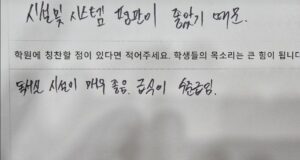 시설 및 시스템 평판이 좋았기 때문.
학원에 칭찬할 점이 있다면 적어주세요. 학생들의 목소리는 큰 힘이 됩니다
시설이 매우 좋음. 급식이 수준급임.